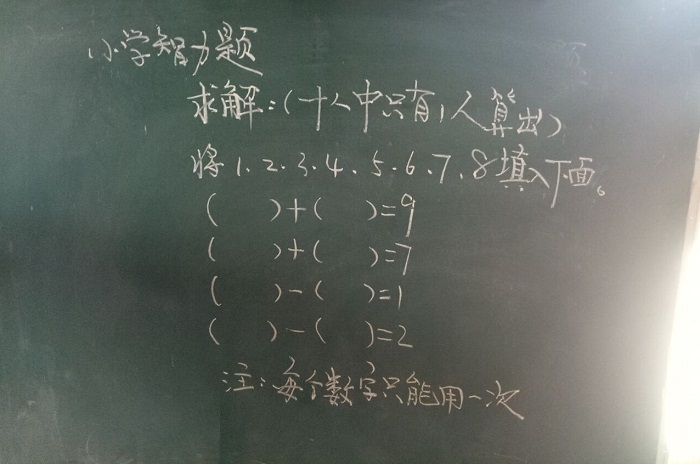 小学智力题
求解:(十人中只有1人算出)
将1、2、3、4、5、6、7、8填入下面。
(  )+(  )=9
(  )+(  )=7
(  )-(  )=1
(  )-(  )=2
注:每个数字只能用一次